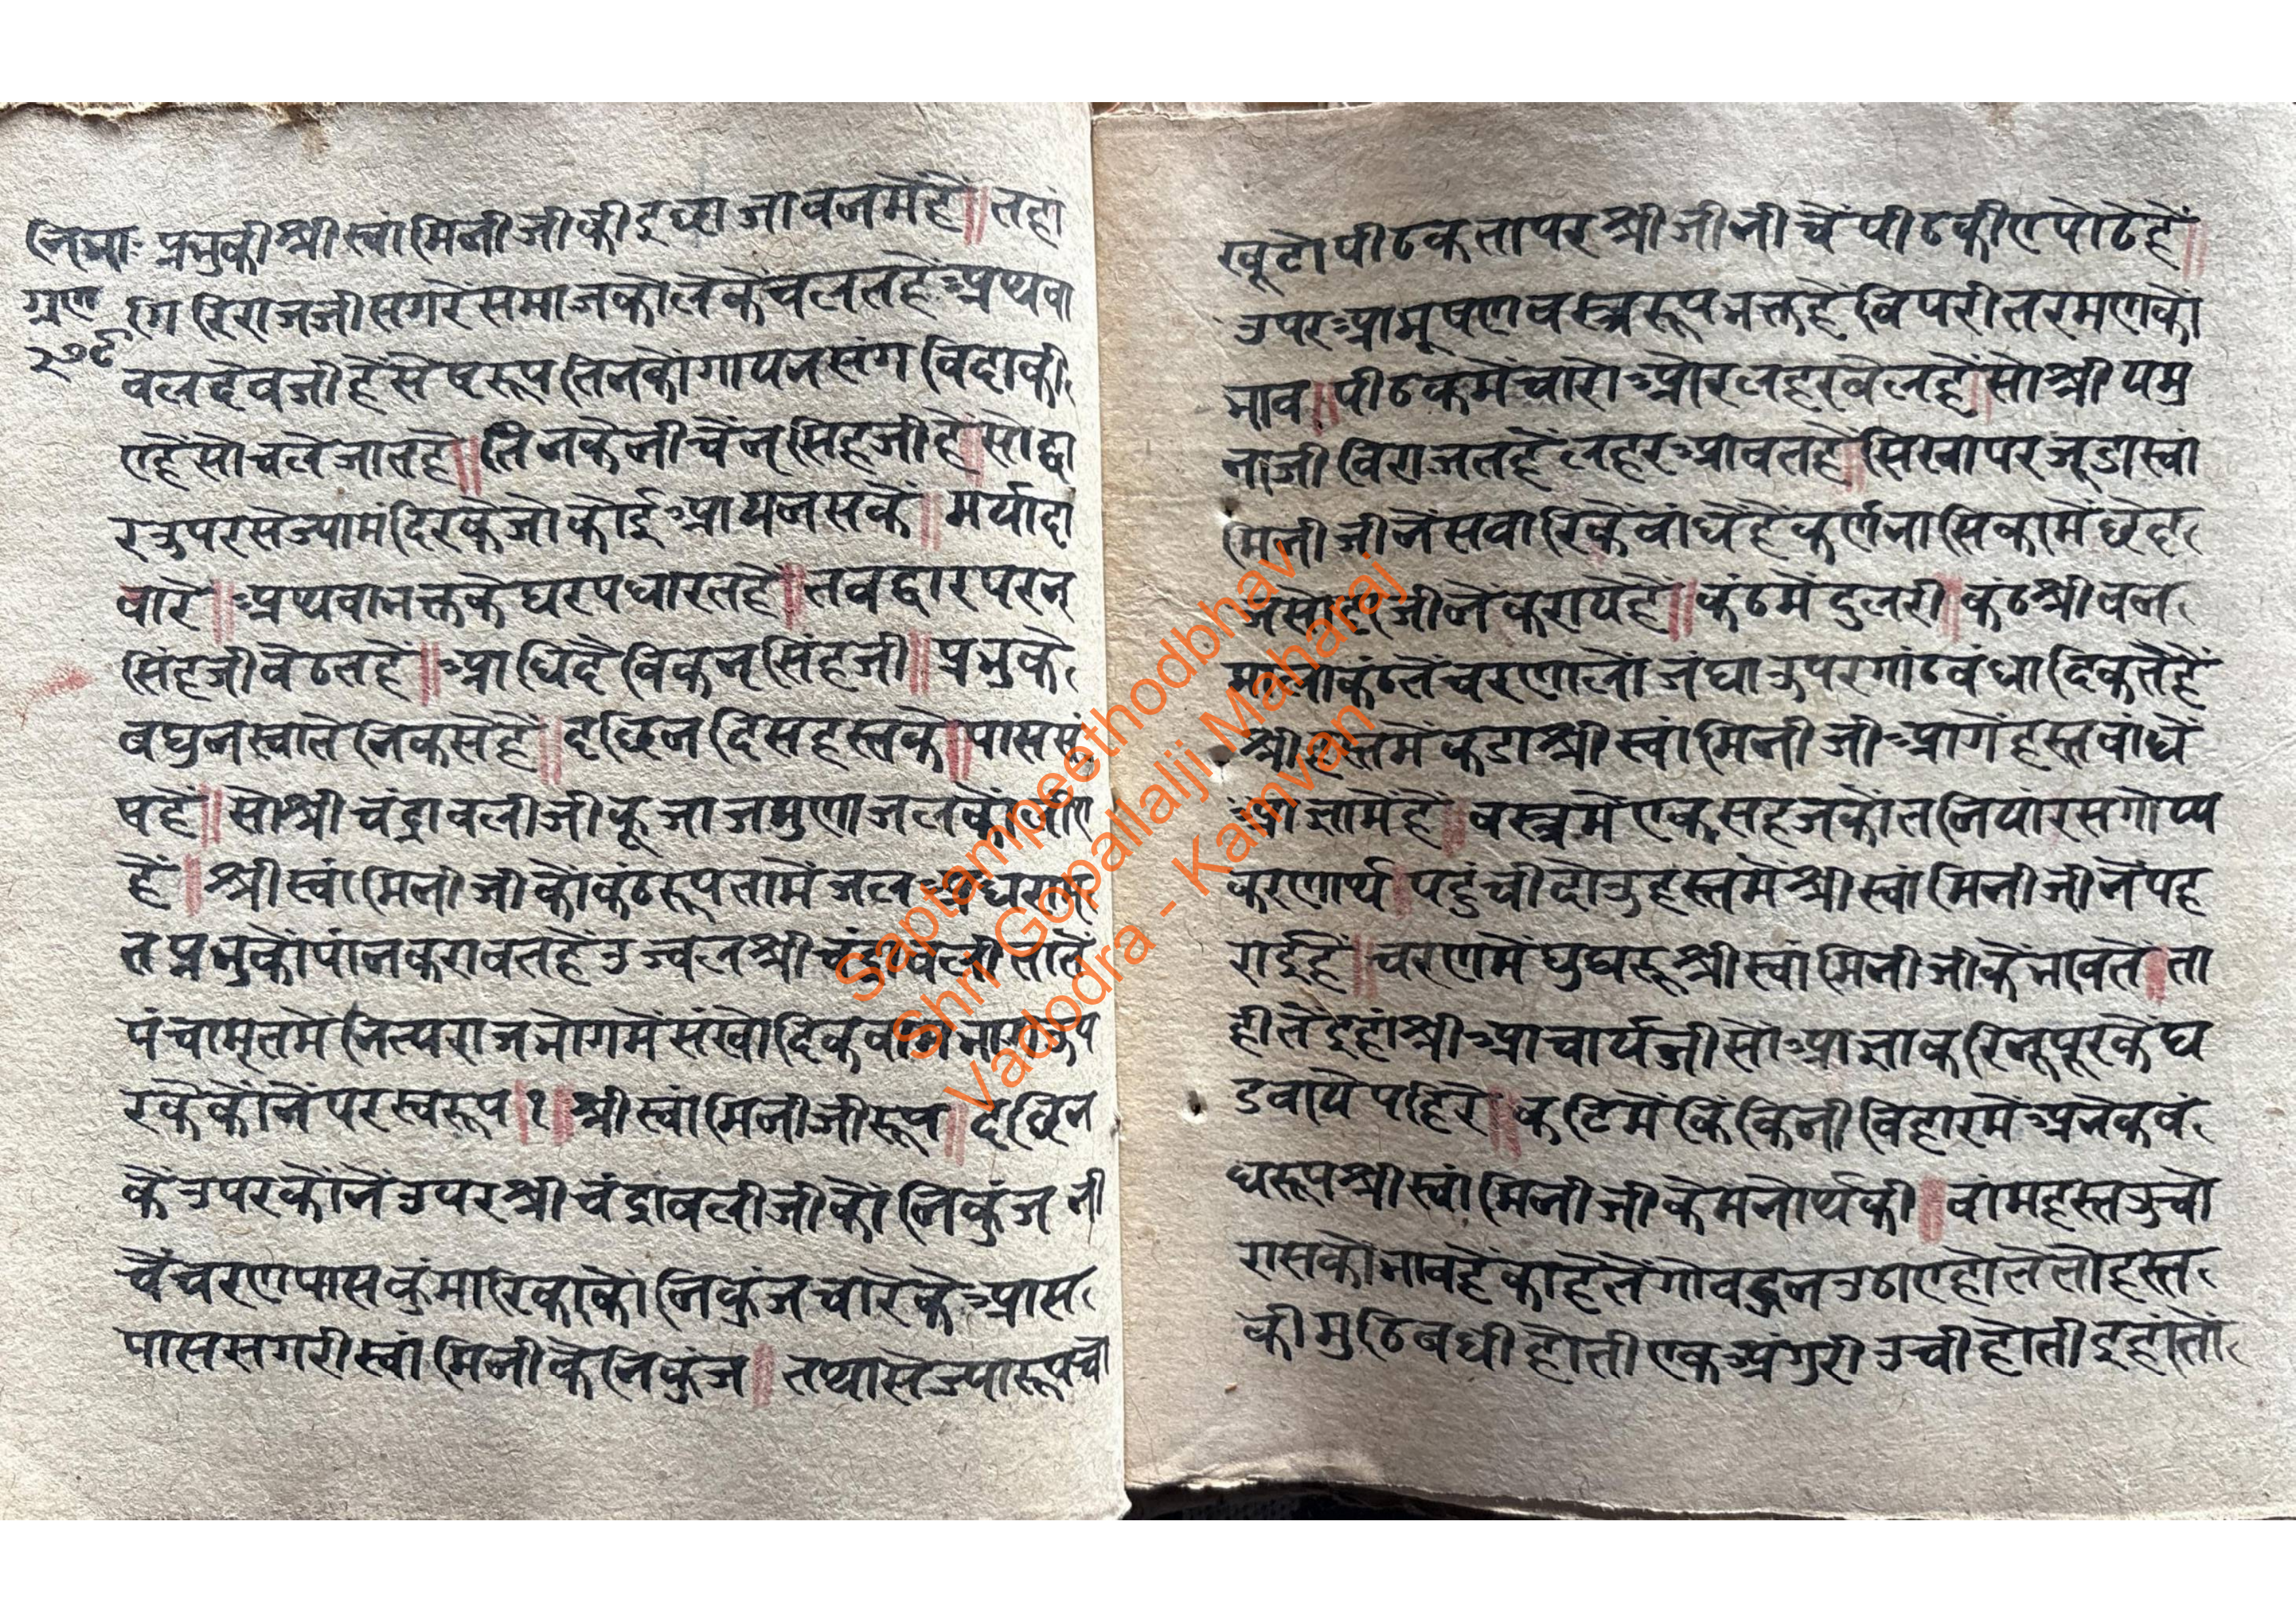 निभाः प्रभुकी श्री स्वांमिनी जी की इच्छा जा वनमेंहै॥तहां
गुण गिरिराजजी सगरे समाजकों लेकें चलतहैं अथवा
२७९ वलदेवजी हैं सेषरूप तिनकों गायन संग विदा की
एहैं सो चले जातहे॥तिनकेनीचें नृसिंहजीहै॥सो द्वा
र उपर सेज्यामंदिरके जो कोई आयन सके॥मर्यादा
वारे॥अथवा भक्तके घर पधारतहै॥तव द्वारपर नृ
सिंहजी वेठतहें॥आधिदैविक नृसिंहजी॥प्रभुके
वघुनस्वाते निकसेहै॥दछिन दिस हस्तके॥पास पु
षहें॥सो श्री चंद्रावलीजी कूजा जमुणा जलकों लीए
हैं॥श्री स्वांमिनी जीकों कंठरूप तामें जल
त प्रभुकों पांन करावतहें उज्वल श्री चंद्रावली तातें
पंचामृतमे नित्य राजभोगमें संखोदिक
रकेकोंनें पर स्वरूप॥१॥श्री स्वांमिनीजीरूप॥दछिन
कें उपर कोंनें उपर श्री चंद्रावलीजीकों निकुंज नी
चें चरण पास कुंमारिकाकों निकुंज चारके आस
पास सगरी स्वांमिनीके निकुंज॥तथा सेज्यारूप चो
खूटो पीठक तापर श्रीजी नीचें पीठकीए पोढेहें॥
उपर आभूषण वस्त्ररूप भक्तहें विपरीत रमणकों
भाव॥पीठकमें चारों ओर लहर वेलहें॥सो श्री यमु
नाजी विराजतहें लहर आवतहें॥सिखा पर जूडा स्वां
मिनीजीनें सवारिकें वांधेहै कर्ण नासिकामें छेद
जसोदाजीनें करायेहै॥कंठमें दुलरी॥कंठश्री वन
माला कंठतें चरणलों जंघा उपर गांठ वंधादिकतेहैं
श्री हस्तमें कडा श्री स्वांमिनी जी आगें हस्त वांधें
आज्ञामेंहें॥वस्त्रमें एक सहजको तनियां रसगोप्य
करणार्थ॥पहुंची दोउ हस्तमें श्री स्वांमिनीजीनें पह
राईहें॥चरणमें घुघरू श्री स्वांमिनीजीकें भावतें॥ता
हीतें इहां श्री आचार्यजी सों आज्ञा करि नूपूरकें घ
डवाये पहिरे॥कटिमें किंकिनी विहारमें अनेक वं
धरूप श्री स्वांमिनीजीके मनोर्थकी॥वांम हस्त उचो
रासकों भावहें काहेतें गोवर्द्धन उठाए होते तो हस्त
की मुठि बधी होती एक अंगुरी उची होती इहां तो
Saptampeethodbhav
Shri Gopallalji Maharaj
Vadodra - Kamvan